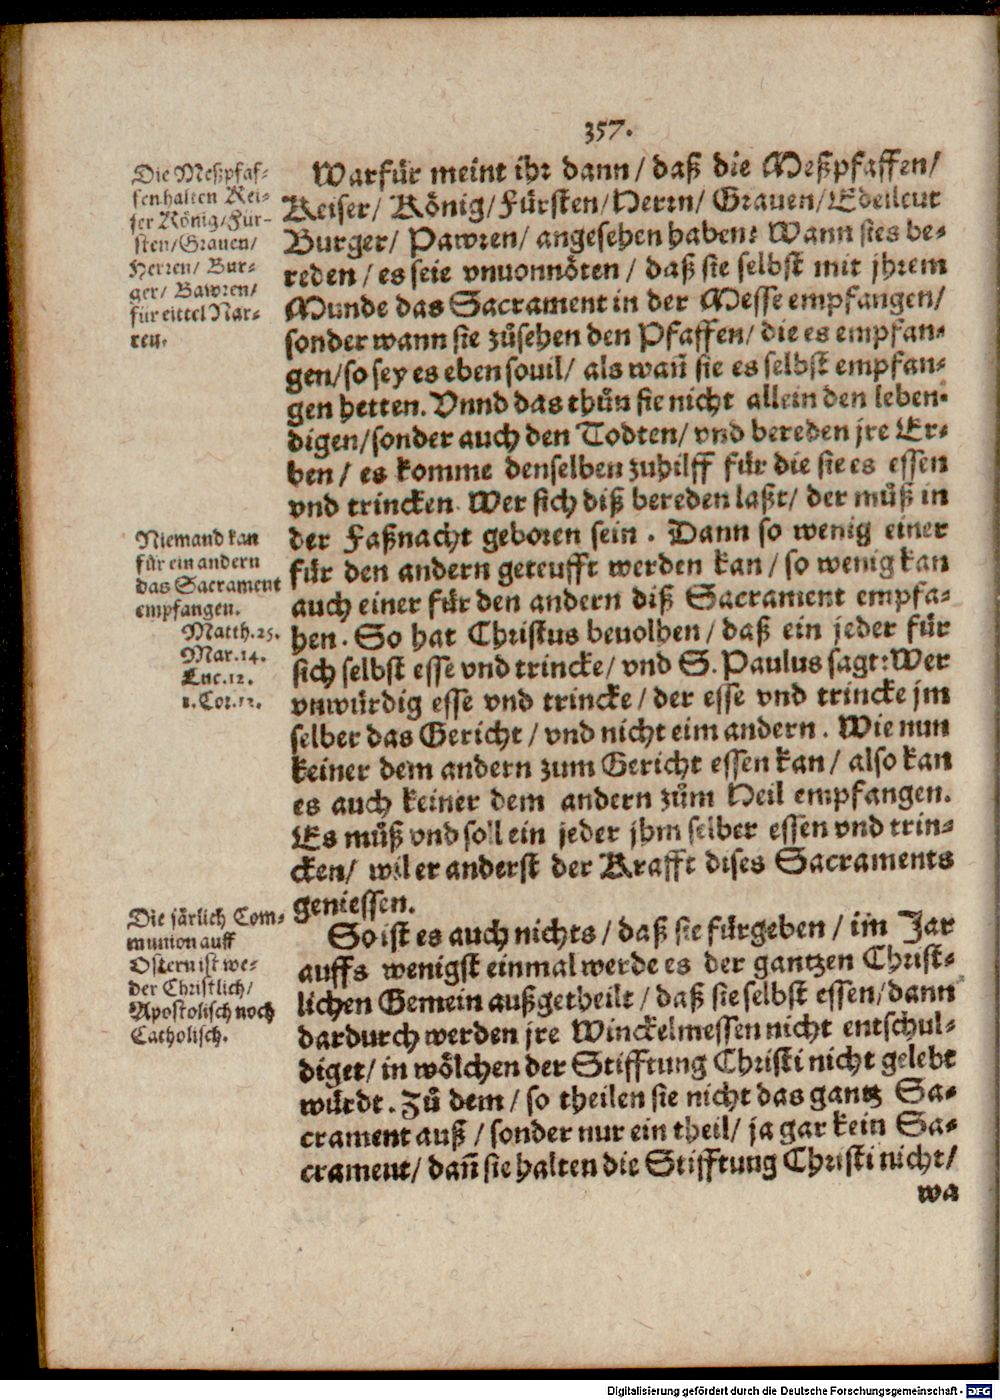 357.
Die Meßpfaf-
fen halten Kei-
ser König/Für-
sten/Grauen/
Herren/ Bur-
ger/ Bawren/
für eittel Nar-
ren.
Warfür meint ihr dann/ daß die Meßpfaffen/
Keiser/ König/Fürsten/Herrn/ Grauen/Edelleut
Burger/ Pawren/ angesehen haben? Wann sies be-
reden/ es seie vnuonnöten/ daß sie selbst mit jhrem
Munde das Sacrament in der Messe empfangen/
sonder wann sie zůsehen den Pfaffen/ die es empfan-
gen/so sey es eben souil/ als wañ sie es selbst empfan-
gen hetten. Vnnd das thůn sie nicht allein den leben-
digen/sonder auch den Todten/ vnd bereden jre Er-
ben/ es komme denselben zuhilff für die sie es essen
vnd trincken. Wer sich diß bereden laßt/ der můß in
der Faßnacht geboren sein. Dann so wenig einer
für den andern geteufft werden kan/ so wenig kan
auch einer für den andern diß Sacrament empfa-
hen. So hat Christus beuolhen/ daß ein jeder für
sich selbst esse vnd trincke/ vnd S. Paulus sagt: Wer
vnwürdig esse vnd trincke/ der esse vnd trincke jm
selber das Gericht/ vnd nicht eim andern. Wie nun
keiner dem andern zum Gericht essen kan/ also kan
es auch keiner dem andern zům Heil empfangen.
Es můß vnd soll ein jeder jhm selber essen vnd trin-
cken/ wil er anderst der Krafft dises Sacraments
geniessen.
Niemand kan
für ein andern
das Sacrament
empfangen.
Matth.25.
Mar.14.
Luc.12.
1.Cor.12.
So ist es auch nichts/ daß sie fürgeben/ im Jar
auffs wenigst einmal werde es der gantzen Christ-
lichen Gemein außgetheilt/ daß sie selbst essen/dann
dardurch werden jre Winckelmessen nicht entschul-
diget/ in wölchen der Stifftung Christi nicht gelebt
würdt. Zů dem/ so theilen sie nicht das gantz Sa-
crament auß/ sonder nur ein theil/ ja gar kein Sa-
crament/ dañ sie halten die Stifftung Christi nicht/
wa
Die järlich Com-
munion auff
Ostern ist we-
der Christlich/
Apostolisch noch
Catholisch.
Digitalisierung gefördert durch die Deutsche Forschungsgemeinschaft - DFG